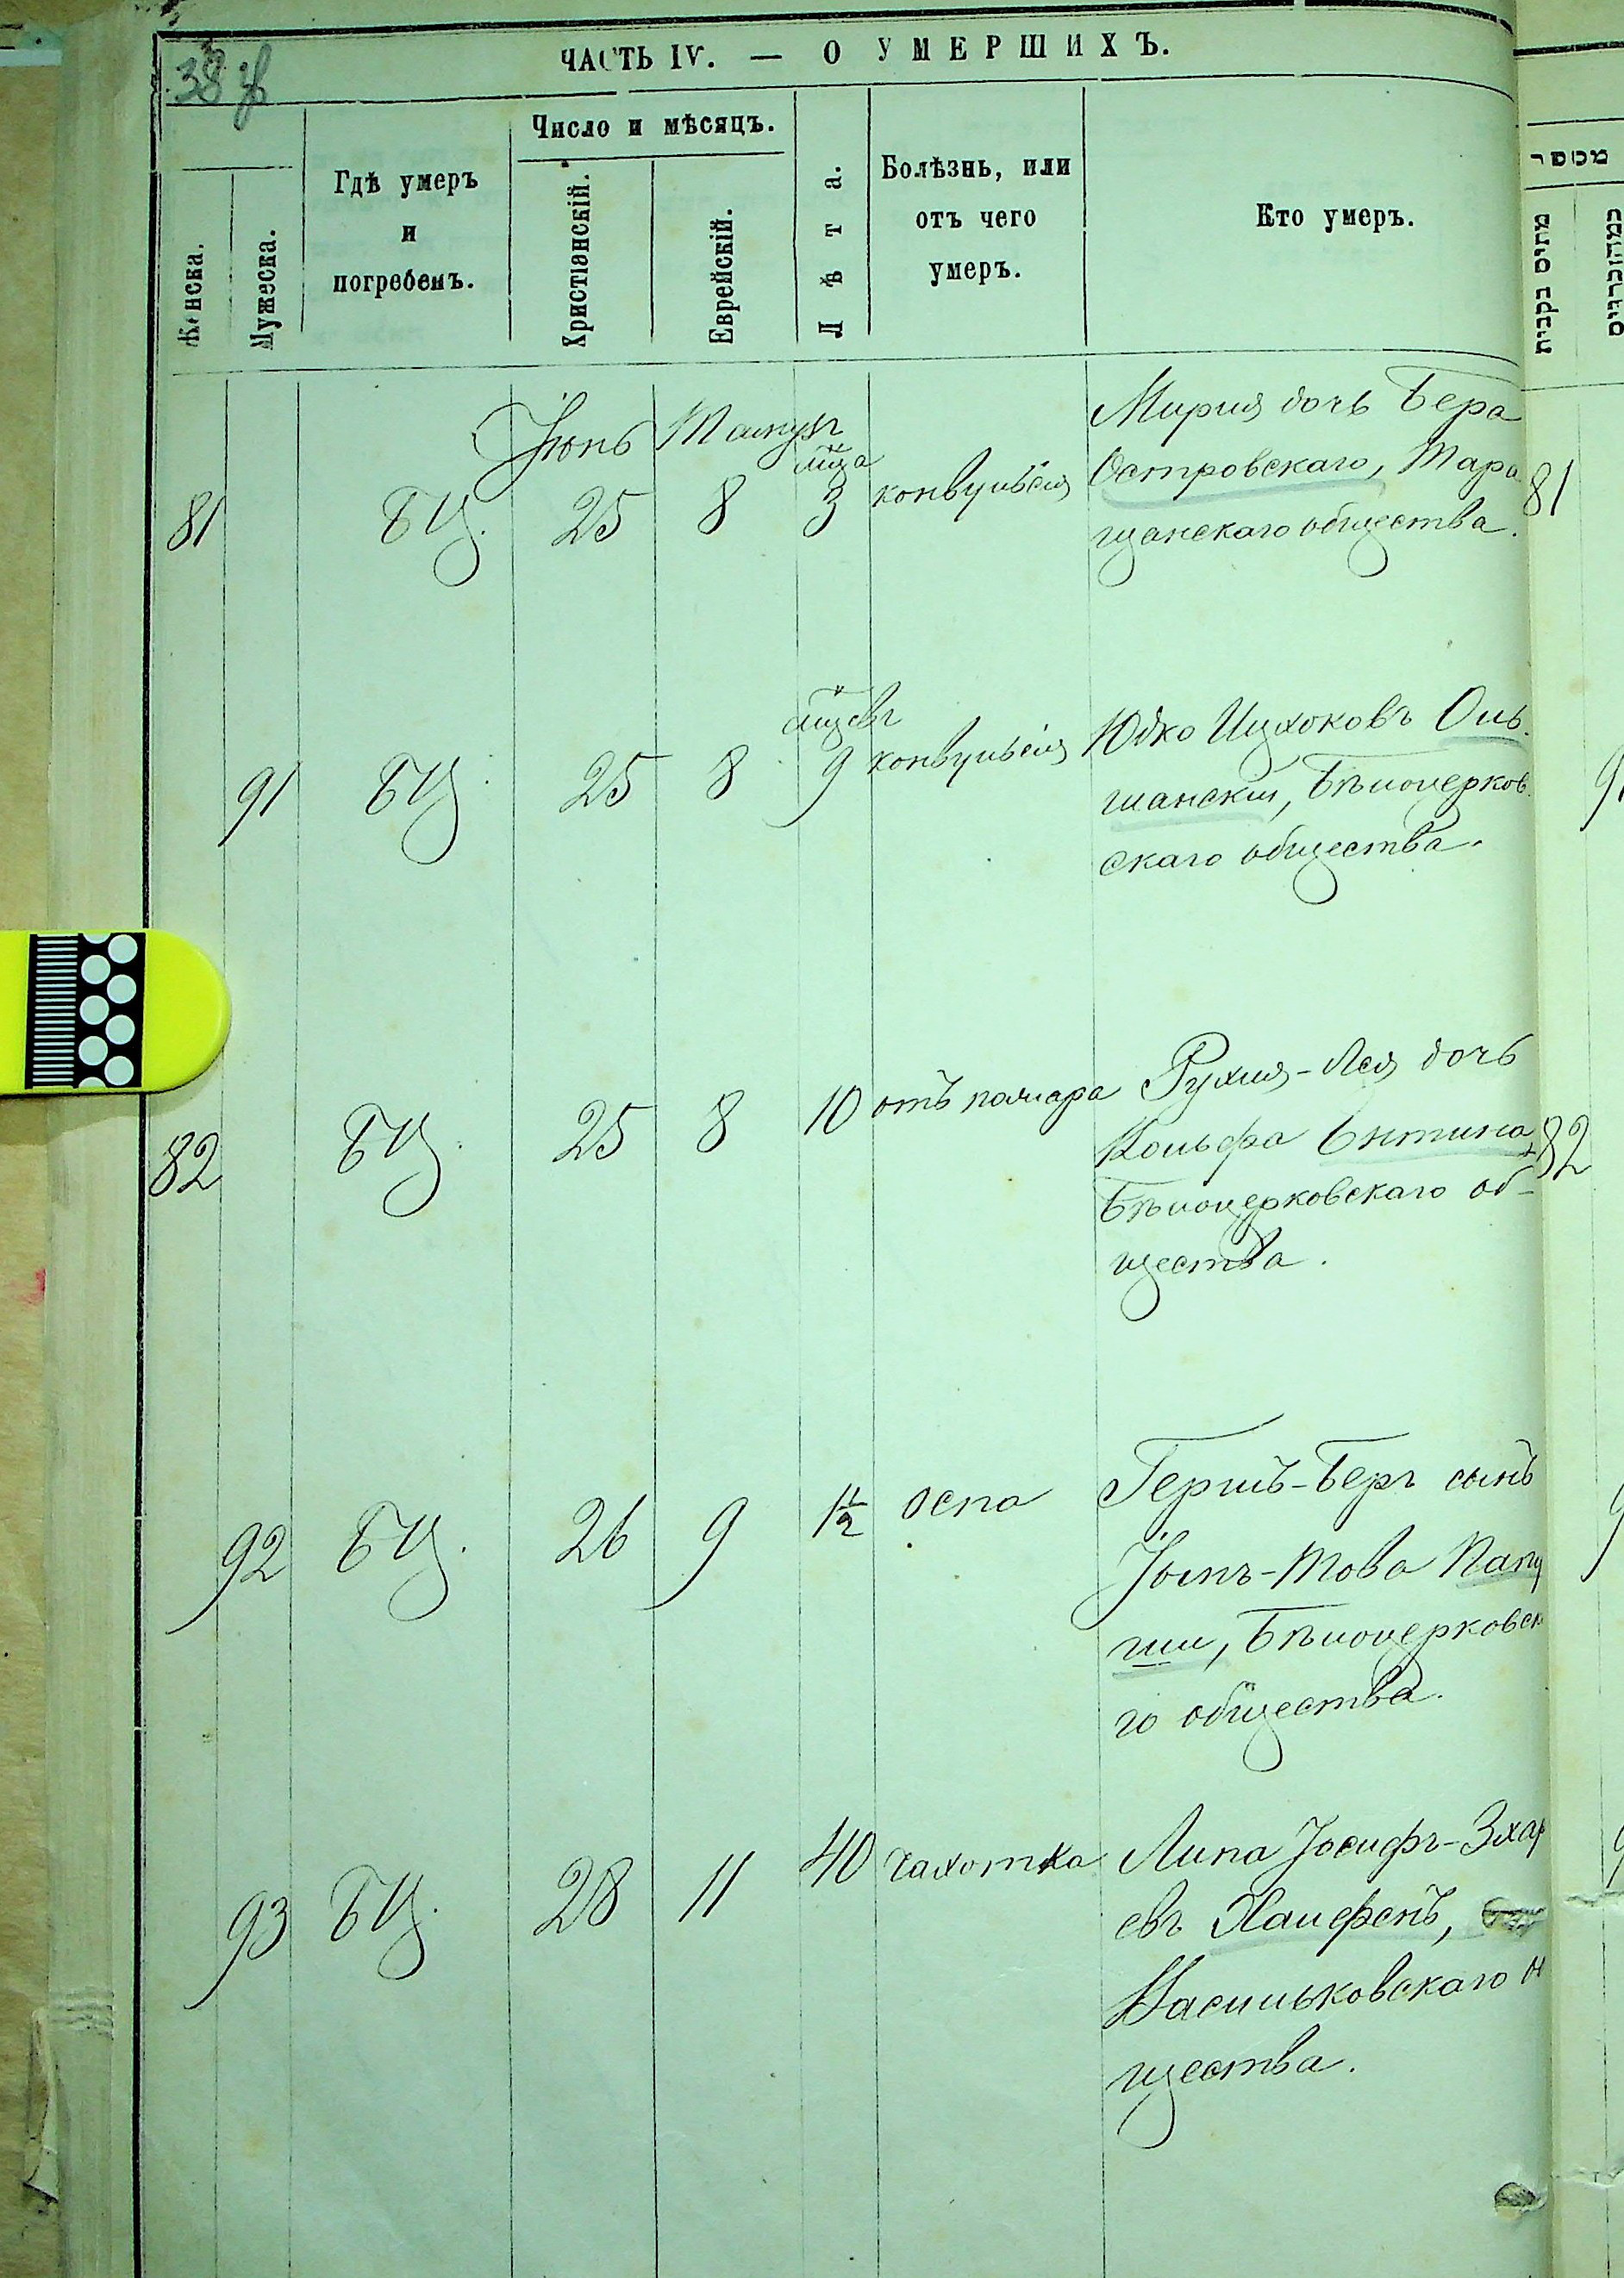 38
ЧАСТЬ IV. — О УМЕРШИХЪ.
Женска.
Мужеска.
Гдѣ умеръ
и
погребенъ.
Число и мѣсяцъ.
Христіанскій.
Еврейскій.
Лѣта.
Болѣзнь, или
отъ чего
умеръ.
Кто умеръ.
מספר
Іюнь Тамузъ
81 БЦ. 25 8 м͠ца 3 конвульсія
Мирия дочь Бера
Островскаго, Тара
щанскаго общества.
81
91 БЦ. 25 8 м͠цевъ 9 конвульсія
Юдко Ицхоковъ Оль
шанскій, Бѣлоцерков
скаго общества.
82 БЦ. 25 8 10 отъ
Рухля-Лея дочь
Вольфа Ентина,
Бѣлоцерковскаго об-
щества.
82
92 БЦ. 26 9 1½ оспа
Гершъ-Беръ сынъ
Іомъ-Това
Бѣлоцерковск
го общества.
93 БЦ. 28 11 40 чахотка
Липа Іосифъ-Зхар
евъ
Васильковскаго
щества.